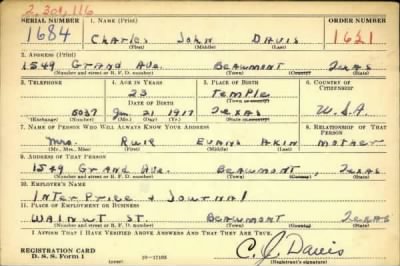 2,309,116
SERIAL NUMBER 1. NAME (Print) ORDER NUMBER
1684 Charles John Davis 1621
(First) (Middle) (Last)
2. ADDRESS (Print)
1549 Grand Ave. Beaumont Texas
(Number and street or R. F. D. number) (Town) (County) (State)
3. TELEPHONE 4. AGE IN YEARS 5. PLACE OF BIRTH 6. COUNTRY OF CITIZENSHIP
23 Temple
DATE OF BIRTH (Town or county)
5037 Jan 21 1917 Texas U.S.A.
(Exchange) (Number) (Mo.) (Day) (Yr.) (State or country)
7. NAME OF PERSON WHO WILL ALWAYS KNOW YOUR ADDRESS 8. RELATIONSHIP OF THAT PERSON
Mrs. Evans Akin Mother
(Mr., Mrs., Miss) (First) (Middle) (Last)
9. ADDRESS OF THAT PERSON
1549 Grand Ave. Beaumont, Texas
(Number and street or R. F. D. number) (Town) (County) (State)
10. EMPLOYER'S NAME
Interprise & Journal
11. PLACE OF EMPLOYMENT OR BUSINESS
Walnut St. Beaumont Texas
(Number and street or R. F. D. number) (Town) (County) (State)
I AFFIRM THAT I HAVE VERIFIED ABOVE ANSWERS AND THAT THEY ARE TRUE.
REGISTRATION CARD
D. S. S. Form 1 (over) C. J. Davis
(Registrant's signature)